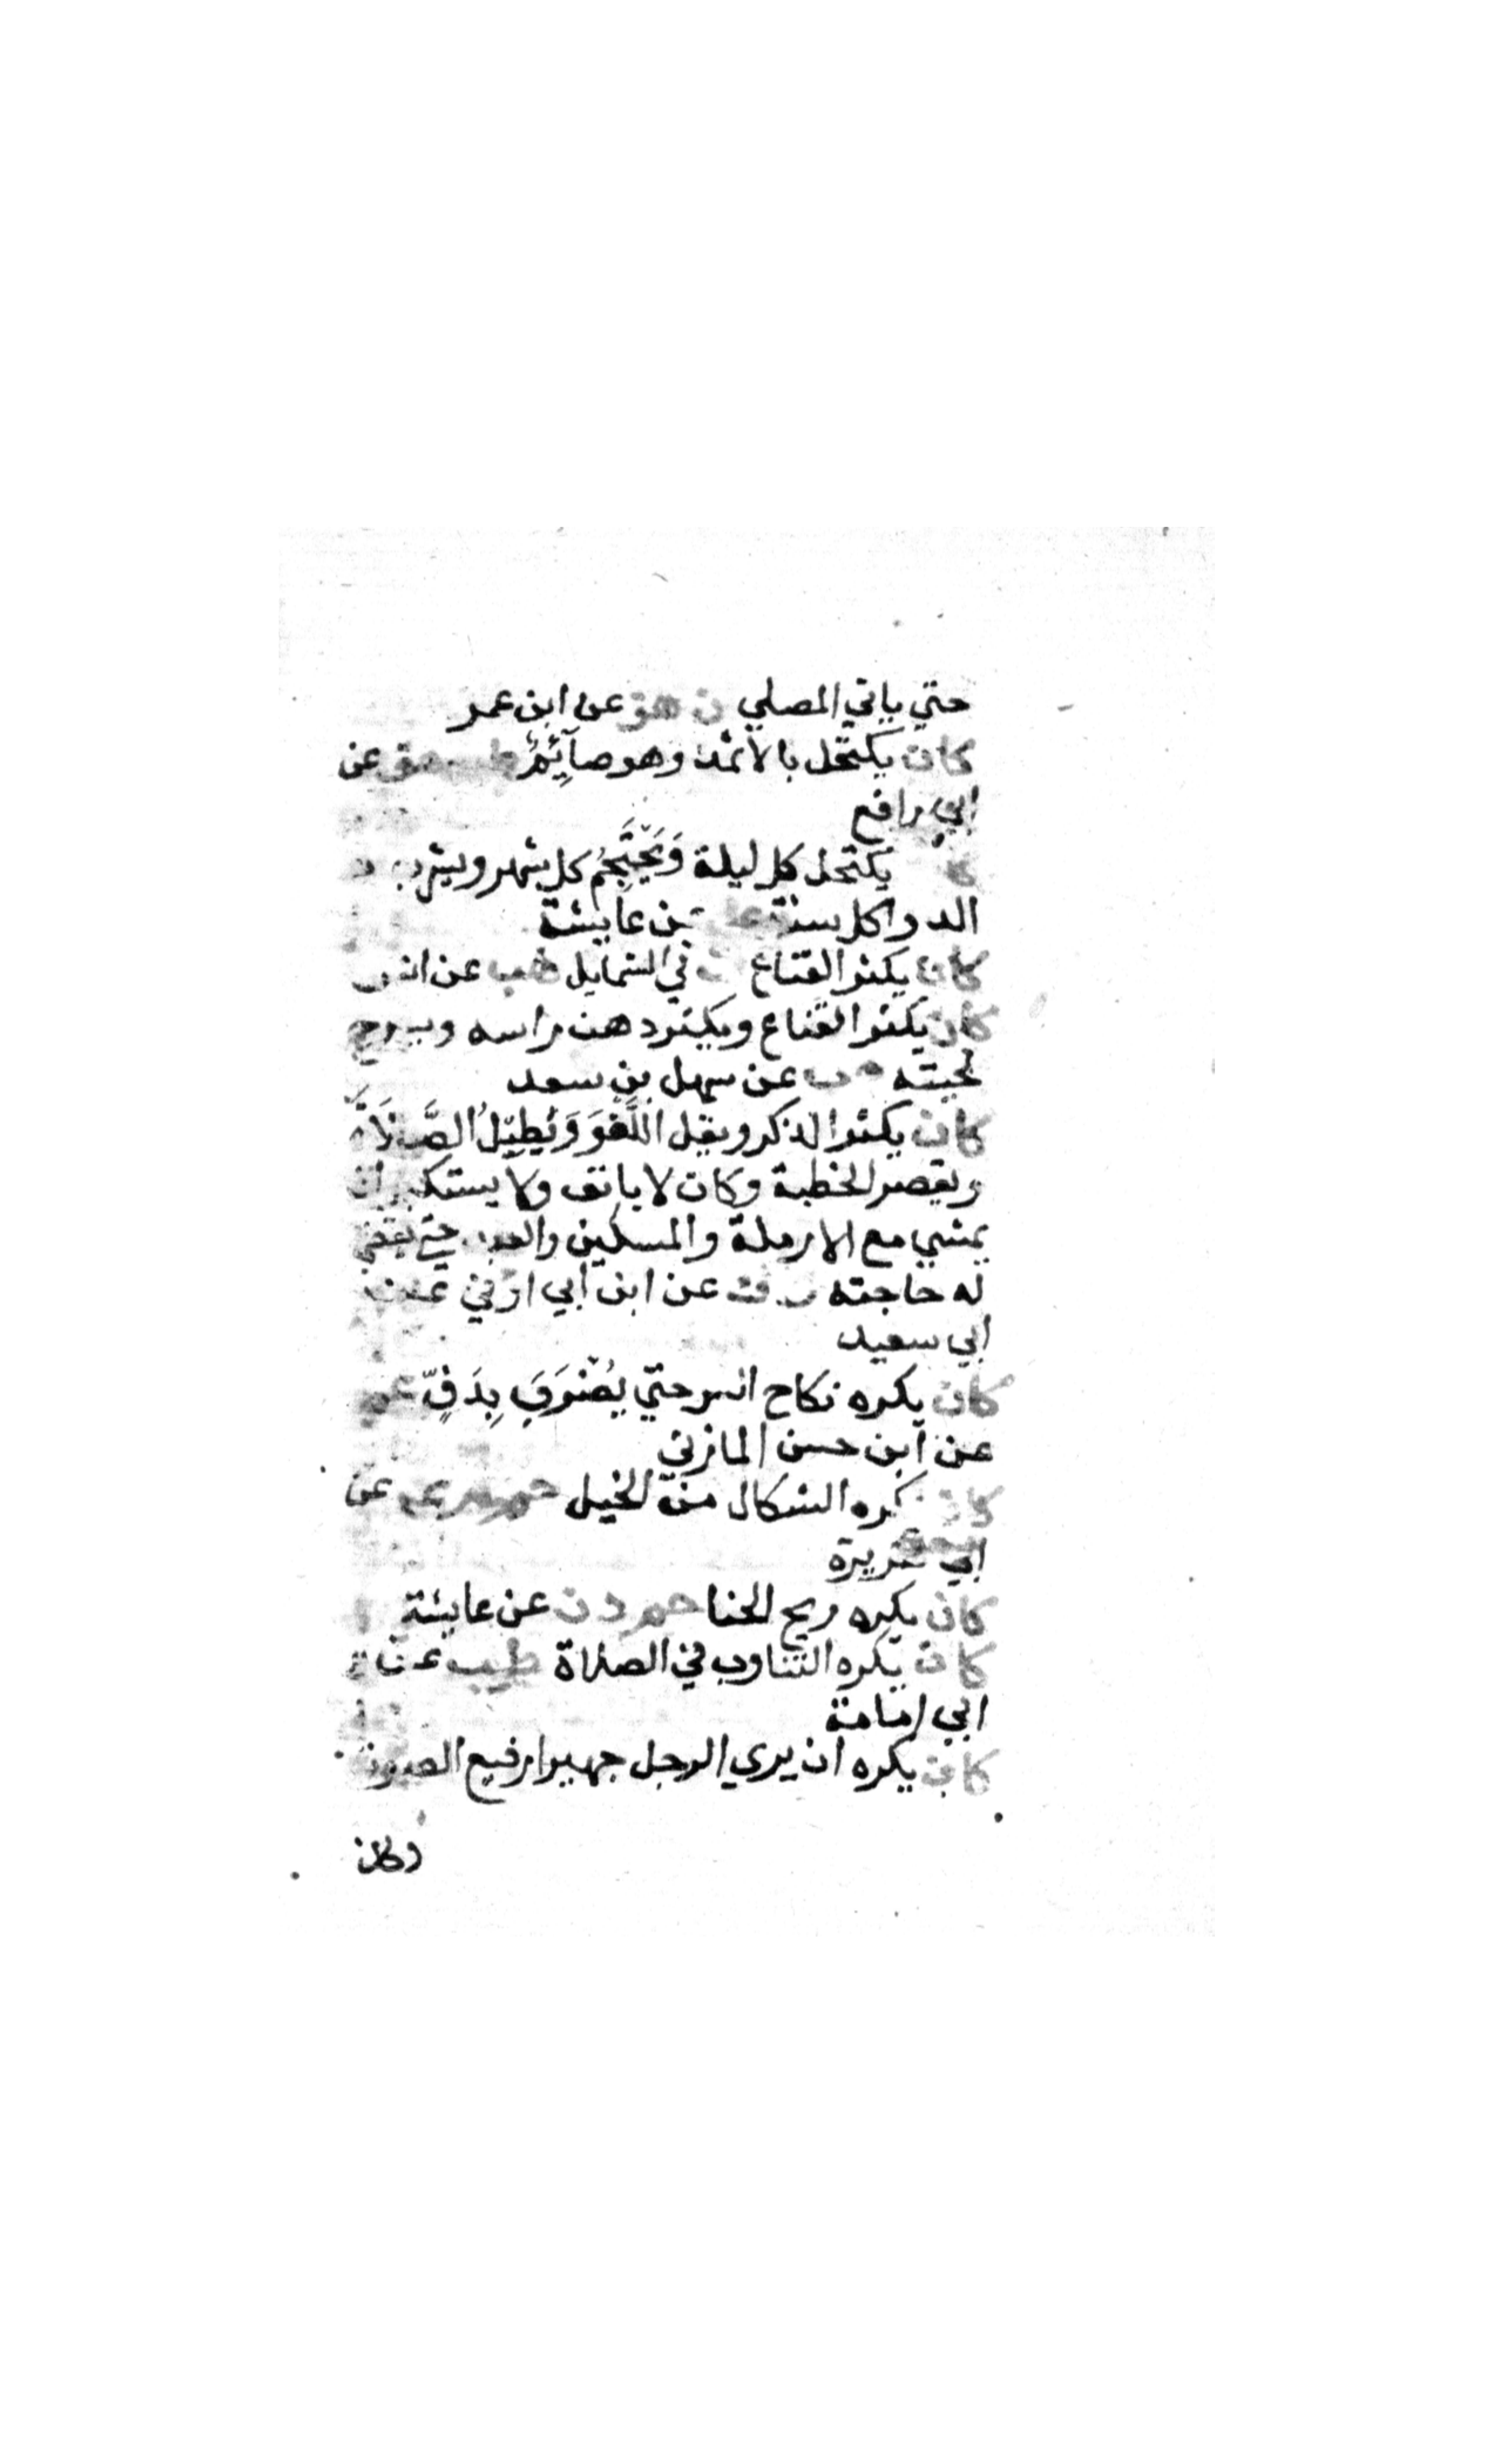 حتي ياتي المصلي هق عن ابن عمر
كان يكتحل بالاثمد وهو صآئِمٌ هق عن
ابي رافع
يكتحل كل ليلة وَيَحْتَجِمُ كل شهر ويشرب
الدوا كل سنة عن عايشة
كان يكثر القناع ت في الشمايل هب عن انس
كان يكثر القناع ويكثر دهن راسه ويسرح
لحيته هب عن سهل بن سعد
كان يكثر الذكر ويقل اللَّغْوَ وَيُطِيلُ الصَّلَاةَ
ويقصر الخطبة وكان لا يانف ولا يستكبر ان
يمشي مع الارملة والمسكين والعبد حتي يقضي
له حاجته ن ك عن ابن ابي اوفي
ابي سعيد
كان يكره نكاح السر حتي يُضْرَبَ بِدَفٍّ عم
عن ابن حسن المازني
كان يكره الشكال من الخيل حم م عن
ابي هريرة
كان يكره ريح الحنا حم د ن عن عايشة
كان يكره التثاوب في الصلاة طب عن
ابي امامة
كان يكره ان يري الرجل جهيرا رفيع الصوت
وكان